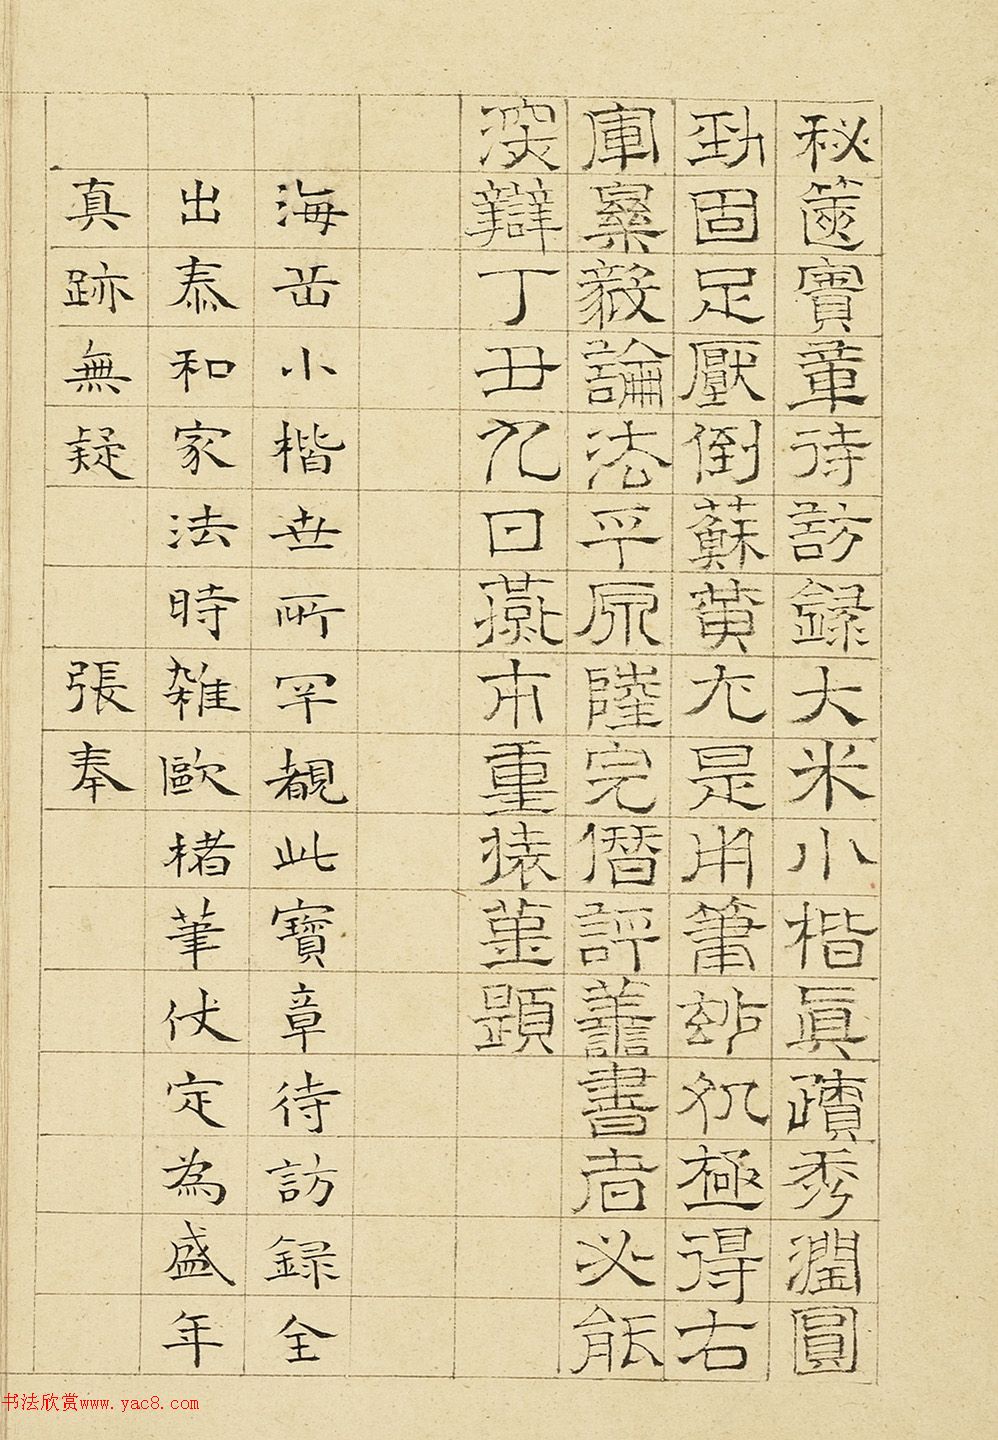 秘篋寶章待訪録大米小楷眞蹟秀潤圓
勁固足壓倒蘇黄尤是用筆玅処極得右
軍樂毅論法平原陸完僭評善書者必能
深辯丁丑九日燕市重菫題
海岳小楷世所罕覩此寶章待訪録全
出泰和家法時雜歐楮筆伏定為盛年
真跡無疑　張奉
书法欣赏www.yac8.com